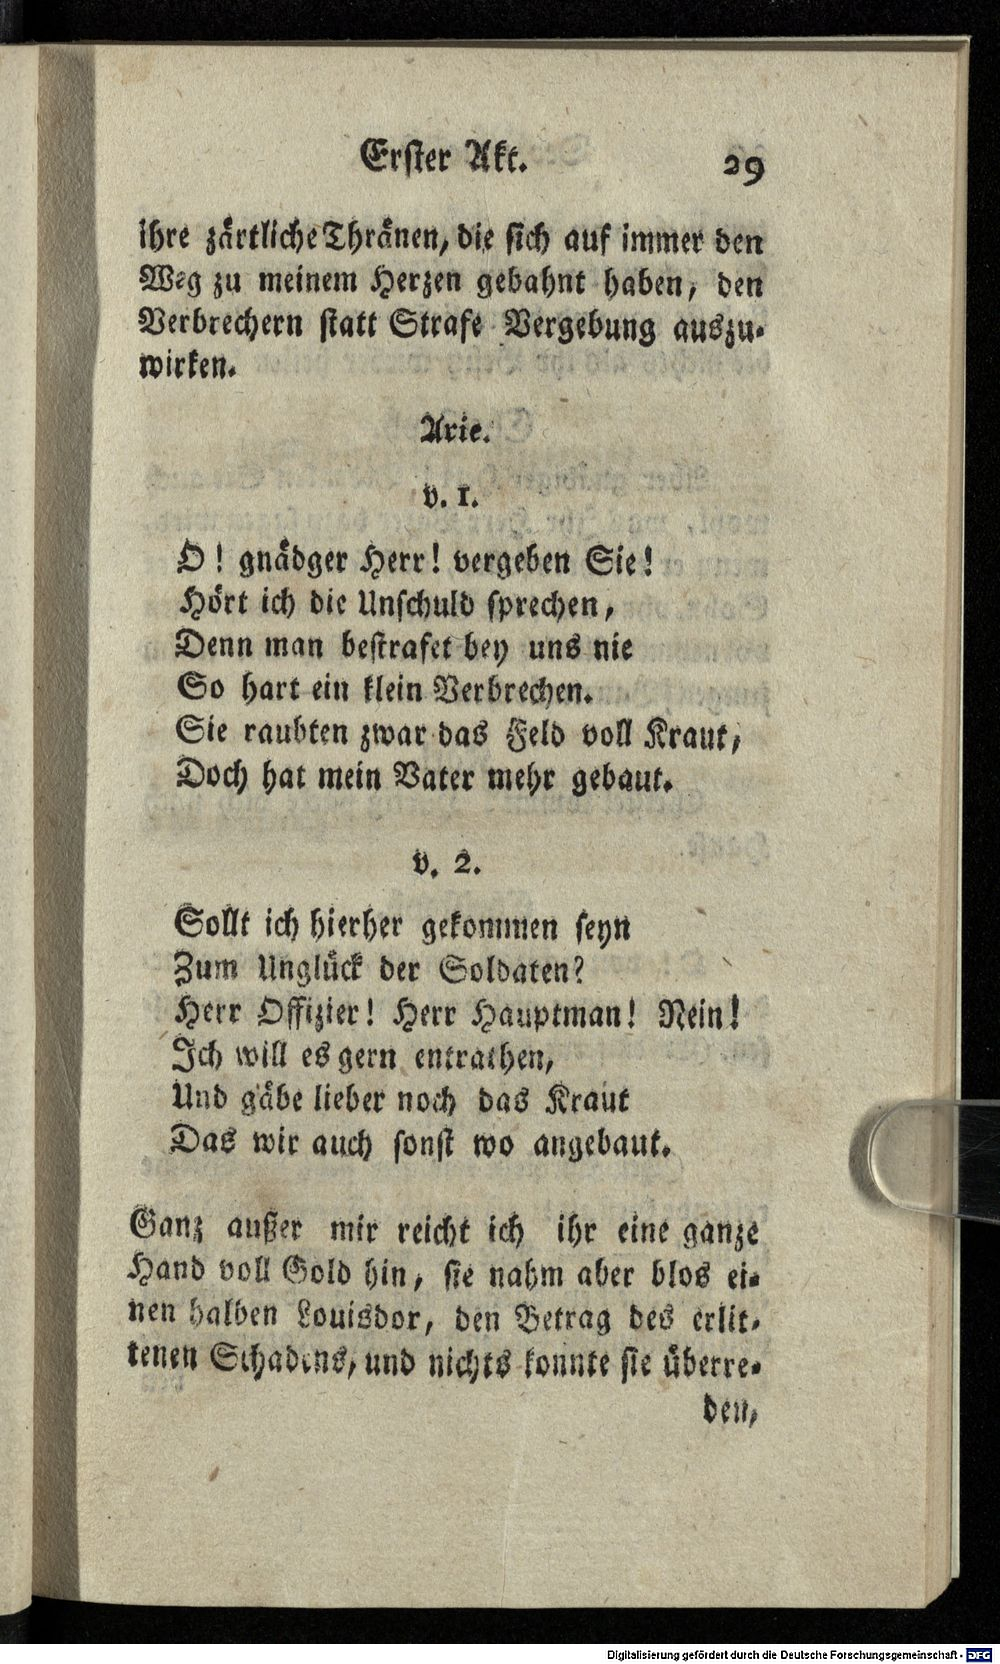 Erster Akt. 29
ihre zärtliche Thränen, die sich auf immer den
Weg zu meinem Herzen gebahnt haben, den
Verbrechern statt Strafe Vergebung auszu-
wirken.
Arie.
v. 1.
O! gnädger Herr! vergeben Sie!
Hört ich die Unschuld sprechen,
Denn man bestrafet bey uns nie
So hart ein klein Verbrechen.
Sie raubten zwar das Feld voll Kraut,
Doch hat mein Vater mehr gebaut.
v. 2.
Sollt ich hierher gekommen seyn
Zum Unglück der Soldaten?
Herr Offizier! Herr Hauptman! Nein!
Ich will es gern entrathen,
Und gäbe lieber noch das Kraut
Das wir auch sonst wo angebaut.
Ganz außer mir reicht ich ihr eine ganze
Hand voll Gold hin, sie nahm aber blos ei-
nen halben Louisdor, den Betrag des erlit-
tenen Schadens, und nichts konnte sie überre-
den,
Digitalisierung gefördert durch die Deutsche Forschungsgemeinschaft - DFG